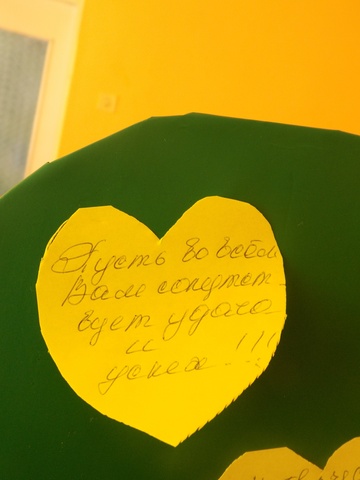 Пусть во всём
Вам сопутст-
вует удача
и
успех !!!